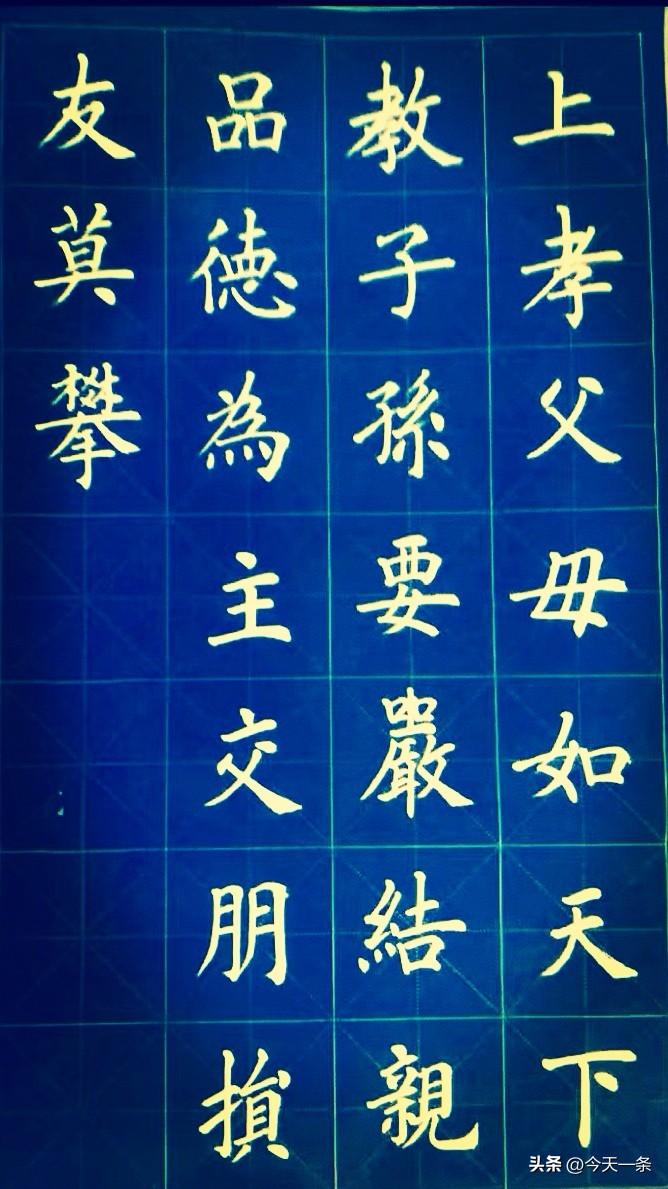 上孝父毋如天下
教子孫要嚴結親
品徳為主交朋損
友莫攀
头条 @今天一条